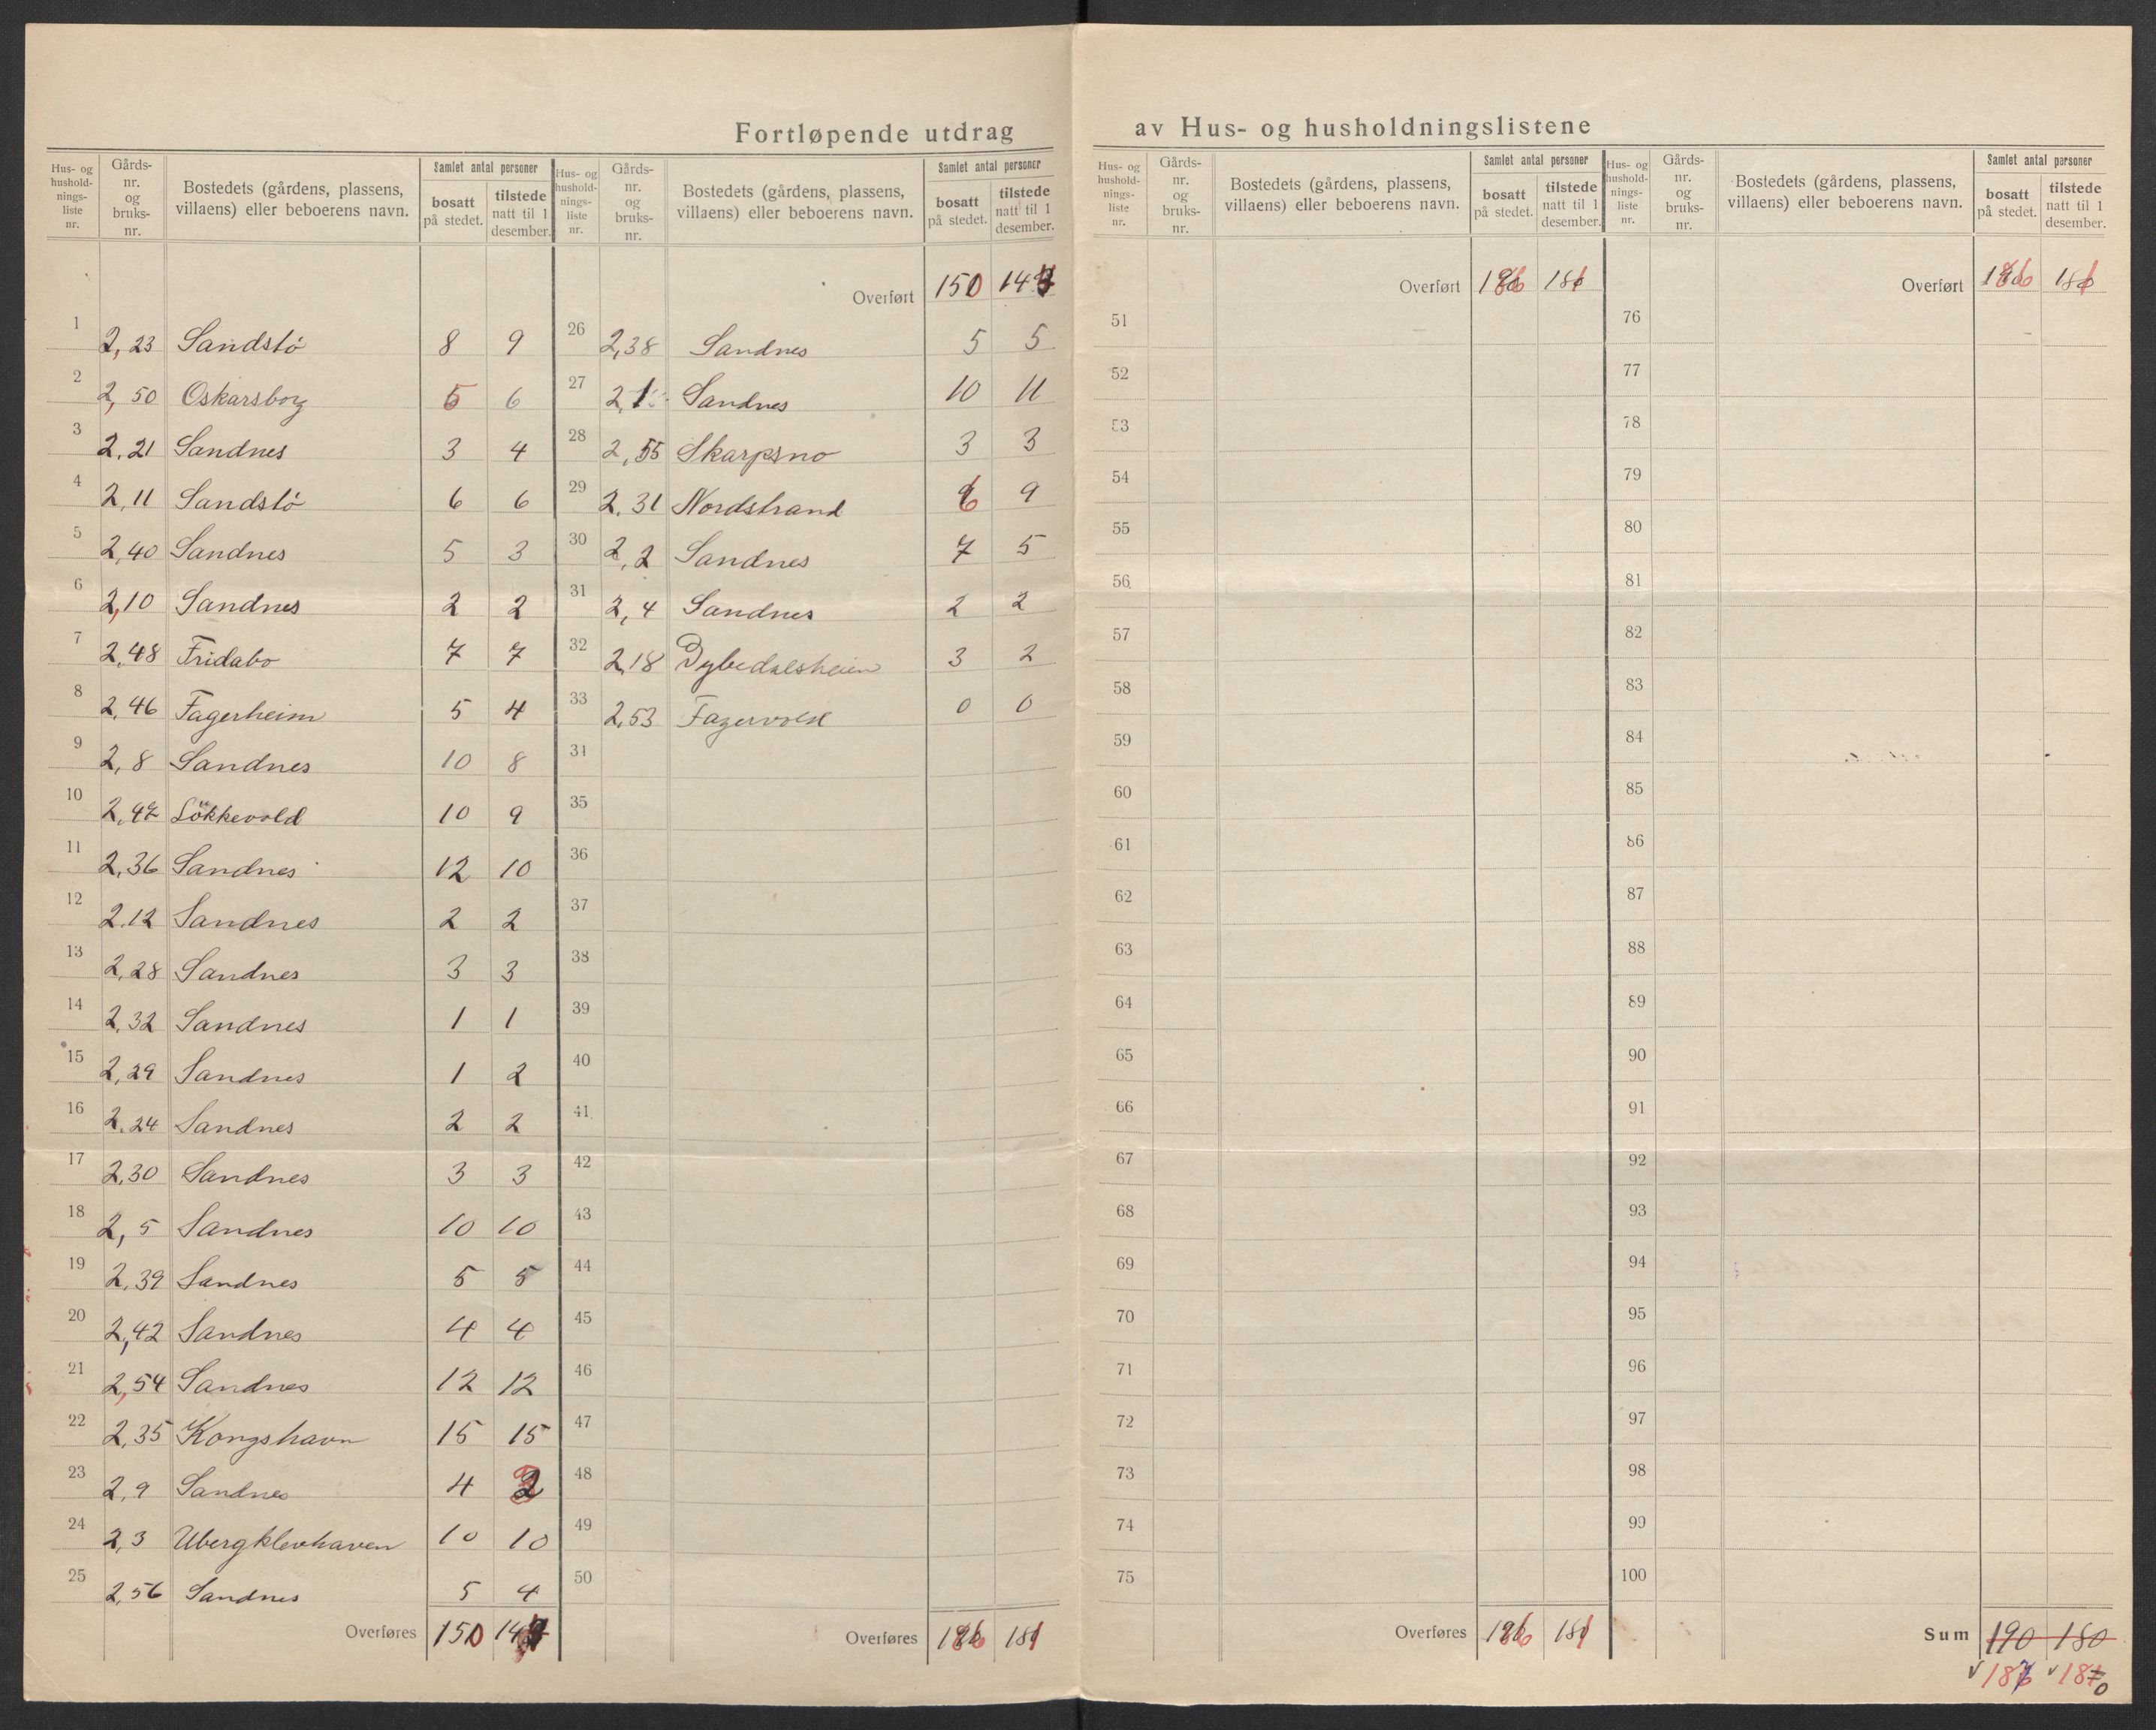 Fortløpende utdrag av Hus- og husholdningslistene
Hus- og hushold- nings- liste nr.
Gårds- nr. og bruks- nr.
Bostedets (gårdens, plassens, villaens) eller beboerens navn.
Samlet antal personer
bosatt på stedet.
tilstede natt til 1 desember.
1 2,23 Sandstö 8 9
2 2,50 Oskarsborg 5 6
3 2,21 Sandnes 3 4
4 2,11 Sandstö 6 6
5 2,40 Sandnes 5 3
6 2,10 Sandnes 2 2
7 2,48 Fridabo 7 7
8 2,46 Fagerheim 5 4
9 2,8 Sandnes 10 8
10 Lökkevold 10 9
11 2,36 Sandnes 12 10
12 2.12 Sandnes 2 2
13 2,28 Sandnes 3 3
14 2,32 Sandnes 1 1
15 2,29 Sandnes 1 2
16 2,24 Sandnes 2 2
17 2,30 Sandnes 3 3
18 2,5 Sandnes 10 10
19 2,39 Sandnes 5 5
20 2,42 Sandnes 4 4
21 2,54 Sandnes 12 12
22 2,35 Kongshavn 15 15
23 2,9 Sandnes 4 2
24 2,3 Ubergklevhaven 10 10
25 2,56 Sandnes 5 4
Overføres 150
Hus- og hushold- nings- liste nr.
Gårds- nr. og bruks- nr.
Bostedets (gårdens, plassens, villaens) eller beboerens navn.
Samlet antal personer
bosatt på stedet.
tilstede natt til 1 desember.
Overført 150 143
26 2,38 Sandnes 5 5
27 2,1 Sandnes 10 11
28 2,55 Skarpsno 3 3
29 2.31 Nordstrand 6 9
30 2,2 Sandnes 7 5
31 2,4 Sandnes 2 2
32 2,18 Dybedalsheien 3 2
33 2,53 Fagervold 0 0
34
35
36
37
38
39
40
41
42
43
44
45
46
47
48
49
50
Overføres 186 181
Hus- og hushold- nings- liste nr.
Gårds- nr. og bruks- nr.
Bostedets (gårdens, plassens, villaens) eller beboerens navn.
Samlet antal personer
bosatt på stedet.
tilstede natt til 1 desember.
Overført 186 181
51
52
53
54
55
56
57
58
59
60
61
62
63
64
65
66
67
68
69
70
71
72
73
74
75
Overføres 186 181
Hus- og hushold- nings- liste nr.
Gårds- nr. og bruks- nr.
Bostedets (gårdens, plassens, villaens) eller beboerens navn.
Samlet antal personer
bosatt på stedet.
tilstede natt til 1 desember.
Overført 186 181
76
77
78
79
80
81
82
83
84
85
86
87
88
89
90
91
92
93
94
95
96
97
98
99
100
Sum 190 180